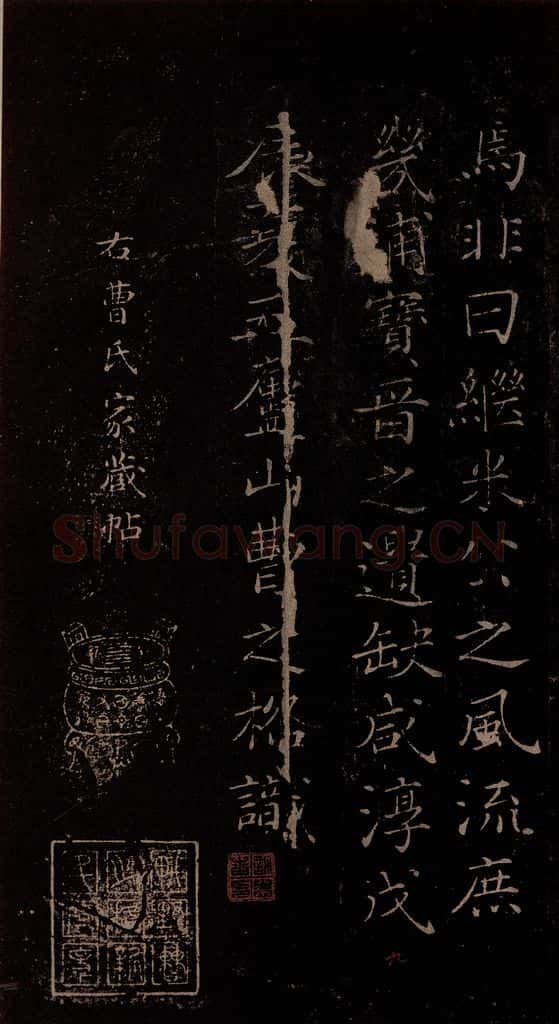 焉非曰繼米公之風流庶
幾補寶晉之遺缺咸淳戊
辰丞廬山曹之格識
右曹氏家藏帖
九
Shufawang.CN